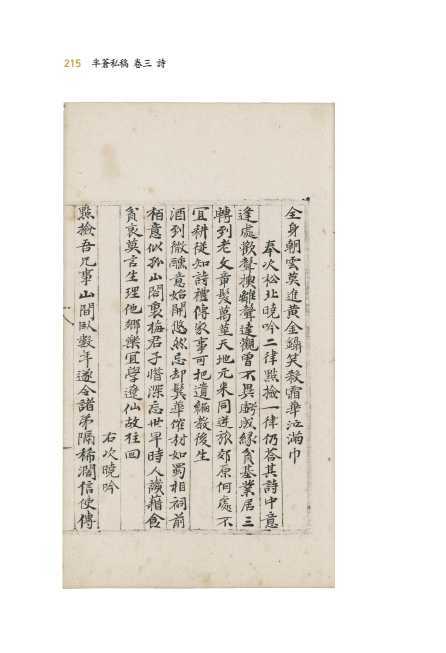 215 半蒼私稿 卷三 詩
全身朝雲英進黃金鑷笑殺霜華泣滿巾
奉次松北曉吟二律點檢一律仍荅其詩中意
逢處歡聲摠離聲達觀曾不異虧成緣貧基業居三
轉到老文章髮萬莖天地元來同逆旅郊原何處不
宜耕從知詩禮傳家事可把遺編敎後生
酒到微醺意始開悠然忘却鬂華催材如蜀相祠前
栢意似孤山閣裏梅君子惜深忘世早時人譏楷食
貧哀莫言生理他鄉樂宜學遼仙故往回
右次曉吟
點檢吾兄事山間臥數年遂令諸弟隔稀濶信使傳